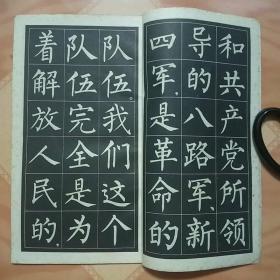 和共产党所领
导的八路军、新
四军，是革命的
队伍。我们这个
队伍完全是为
着解放人民的，